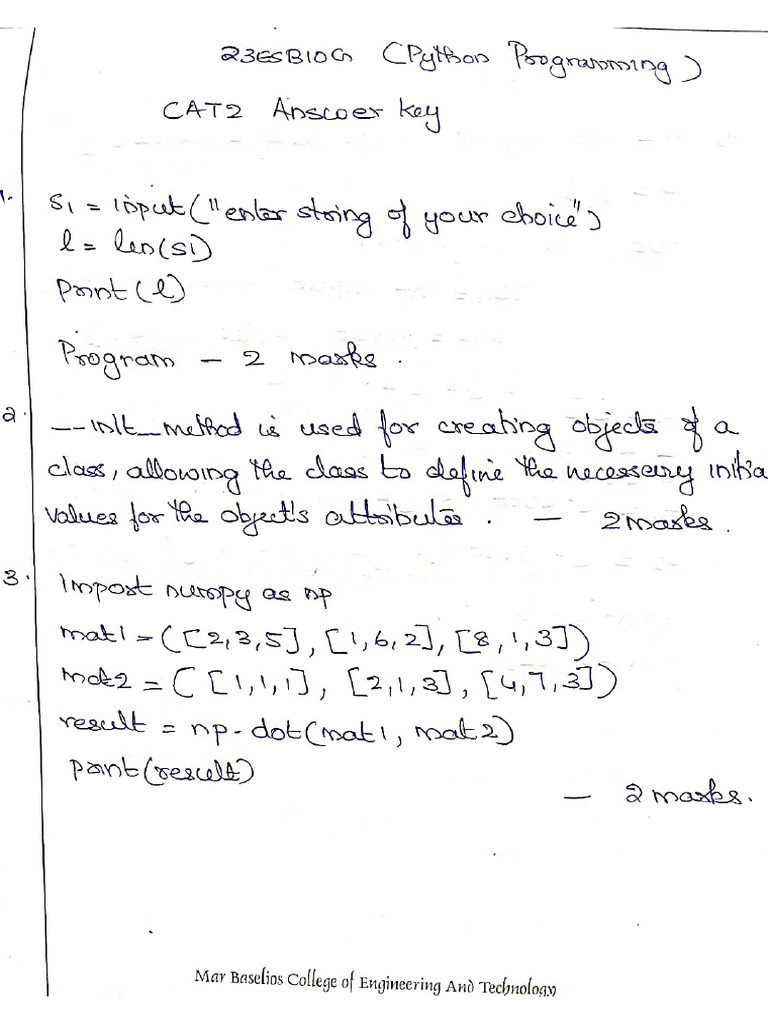 23ESB10G (Python Programming)
CAT2 Answer Key
1. S1 = input("enter string of your choice")
l = len(S1)
Print(l)
Program - 2 marks.
2. __init_method is used for creating objects of a
class, allowing the class to define the necessary initia
values for the object's attributes. - 2 marks.
3. Import numpy as np
mat1 = ([2,3,5], [1,6,2], [8,1,3])
mat2 = ([1,1,1], [2,1,3], [4,7,3])
result = np.dot(mat1, mat2)
print(result)
- 2 marks.
Mar Baselios College of Engineering And Technology